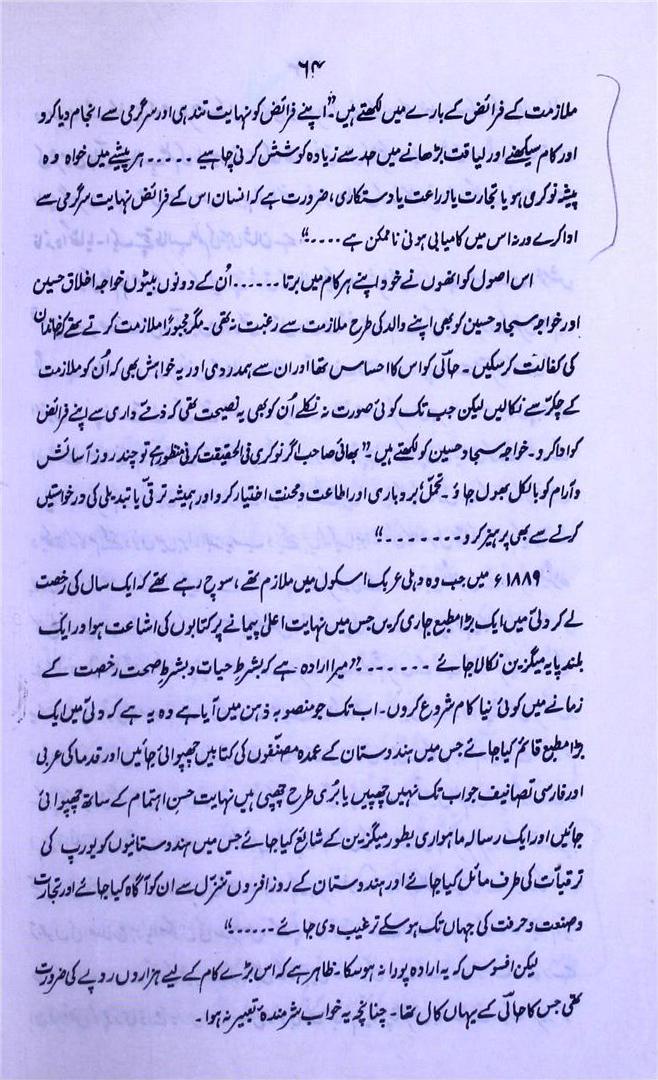 ۶۴
ملازمت کے فرائض کے بارے میں لکھتے ہیں۔ "اپنے فرائض کو نہایت تندہی اور سرگرمی سے انجام دیا کرو
اور کام سیکھنے اور لیاقت بڑھانے میں حد سے زیادہ کوشش کرنی چاہیے ۔۔۔۔۔ ہر پیشے میں خواہ وہ
پیشہ نوکری ہو یا تجارت یا زراعت یا دستکاری، ضرورت ہے کہ انسان اس کے فرائض نہایت سرگرمی سے
ادا کرے ورنہ اس میں کامیابی ہونی ناممکن ہے ۔۔۔۔"
اس اصول کو انھوں نے خود اپنے ہر کام میں برتا ۔۔۔۔۔۔ اُن کے دونوں بیٹوں خواجہ اخلاق حسین
اور خواجہ سجاد حسین کو بھی اپنے والد کی طرح ملازمت سے رغبت نہ تھی۔ مگر مجبوراً ملازمت کرتے تھے کہ خاندان
کی کفالت کر سکیں۔ حالؔی کو اس کا احساس تھا اور ان سے ہمدردی اور یہ خواہش بھی کہ اُن کو ملازمت
کے چکّر سے نکالیں لیکن جب تک کوئی صورت نہ نکلے اُن کو بھی یہ نصیحت تھی کہ ذمّے داری سے اپنے فرائض
کو ادا کرو۔ خواجہ سجاد حسین کو لکھتے ہیں۔ "بھائی صاحب اگر نوکری فی الحقیقت کرنی منظور ہے تو چند روز آسائش
و آرام کو بالکل بھول جاؤ۔ تحمّل بُردباری اور اطاعت و محنت اختیار کرو اور ہمیشہ ترقی یا تبدیلی کی درخواستیں
کرنے سے بھی پرہیز کرو ۔۔۔۔۔۔۔"
۱۸۸۹ء میں جب وہ دہلی عربک اسکول میں ملازم تھے، سوچ رہے تھے کہ ایک سال کی رخصت
لے کر دلّی میں ایک بڑا مطبع جاری کریں جس میں نہایت اعلیٰ پیمانے پر کتابوں کی اشاعت ہو اور ایک
بلند پایہ میگزین نکالا جائے ۔۔۔۔۔۔ "میرا ارادہ ہے کہ بشرطِ حیات و بشرطِ صحت رخصت کے
زمانے میں کوئی نیا کام شروع کروں۔ اب تک جو منصوبہ ذہن میں آیا ہے وہ یہ ہے کہ دلّی میں ایک
بڑا مطبع قائم کیا جائے جس میں ہندوستان کے عمدہ مصنّفوں کی کتابیں چھپوائی جائیں اور قدما کی عربی
اور فارسی تصانیف جو اب تک نہیں چھپیں یا بُری طرح چھپی ہیں نہایت حسنِ اہتمام کے ساتھ چھپوائی
جائیں اور ایک رسالہ ماہواری بطور میگزین کے شائع کیا جائے جس میں ہندوستانیوں کو یورپ کی
ترقیات کی طرف مائل کیا جائے اور ہندوستان کے روز افزوں تنزّل سے ان کو آگاہ کیا جائے اور تجارت
و صنعت و حرفت کی جہاں تک ہو سکے ترغیب دی جائے ۔۔۔۔۔"
لیکن افسوس کہ یہ ارادہ پورا نہ ہو سکا۔ ظاہر ہے کہ اس بڑے کام کے لیے ہزاروں روپے کی ضرورت
تھی جس کا حالؔی کے یہاں کال تھا۔ چنانچہ یہ خواب شرمندۂ تعبیر نہ ہوا۔